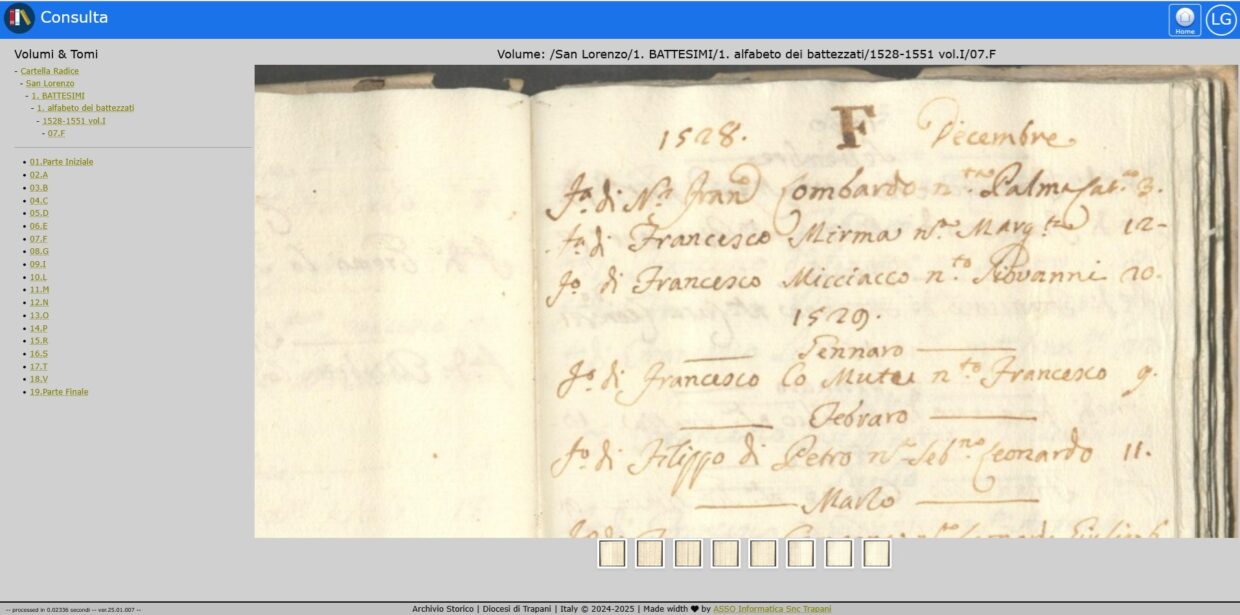 Consulta
Home
LG
Volumi & Tomi
- Cartella Radice
- San Lorenzo
- 1. BATTESIMI
- 1. alfabeto dei battezzati
- 1528-1551 vol.I
- 07.F
• 01.Parte Iniziale
• 02.A
• 03.B
• 04.C
• 05.D
• 06.E
• 07.F
• 08.G
• 09.I
• 10.L
• 11.M
• 12.N
• 13.O
• 14.P
• 15.R
• 16.S
• 17.T
• 18.V
• 19.Parte Finale
Volume: /San Lorenzo/1. BATTESIMI/1. alfabeto dei battezzati/1528-1551 vol.I/07.F
1528. F Decembre
di Lombardo n.ta Palma 3.
di Francesco Mirma n.ta Marg.ta 12-
Jo di Francesco Micciacco n.to Giovanni 20.
1529.
Jennaro
Jo di Francesco Lo Mutei n.to Francesco 9.
Febraro
Jo di Filippo di Petro Leonardo 11.
Marzo
-- processed in 0.02336 secondi -- ver.25.01.007 --
Archivio Storico | Diocesi di Trapani | Italy © 2024-2025 | Made width ♥ by ASSO Informatica Snc Trapani